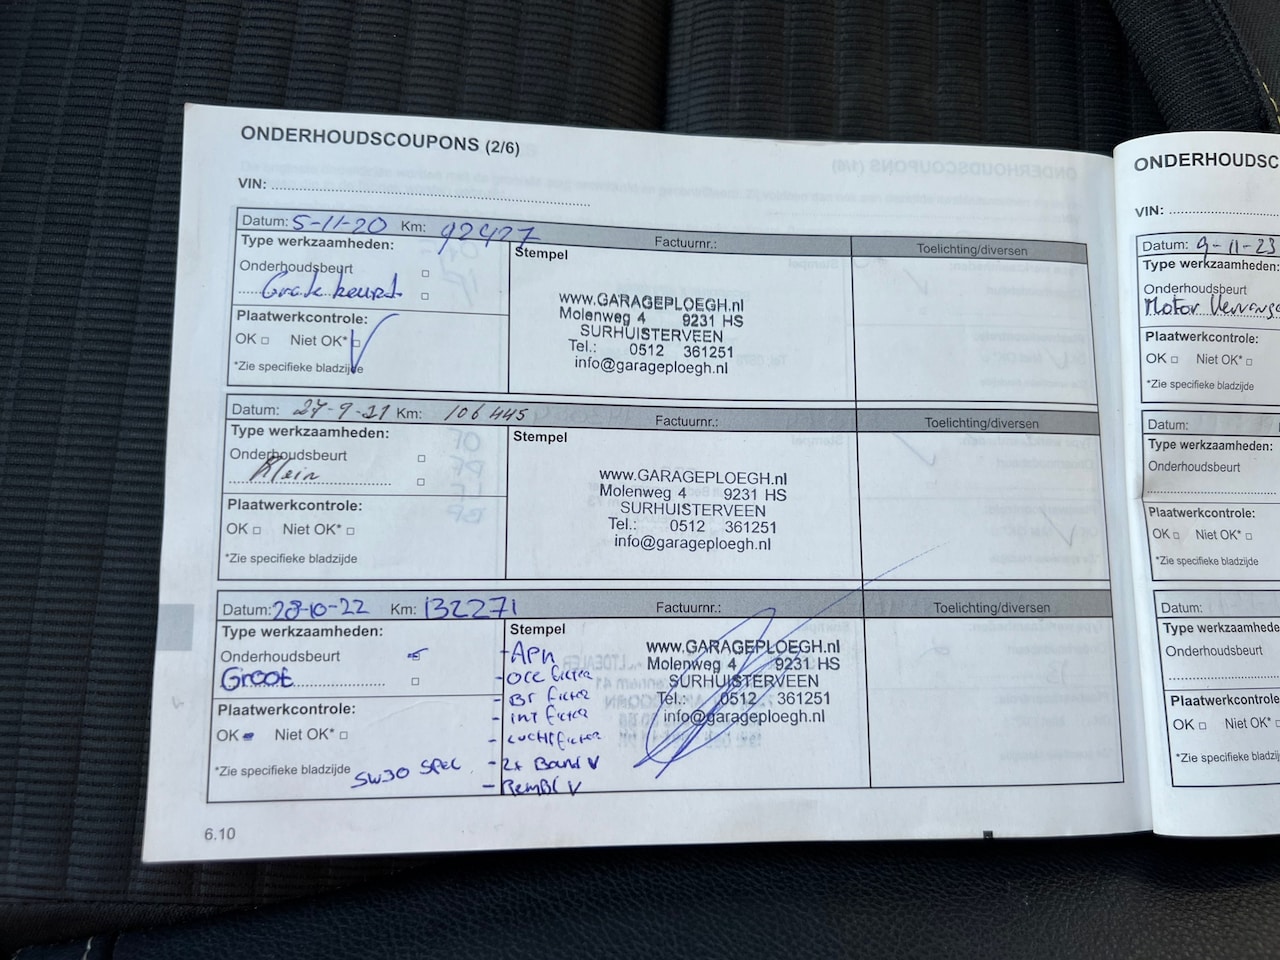 ONDERHOUDSCOUPONS (2/6)
VIN:
Datum: 5-11-20 Km: 92427 Factuurnr.: Toelichting/diversen
Type werkzaamheden:
Stempel
Onderhoudsbeurt
Grote beurt
www.GARAGEPLOEGH.nl
Molenweg 4 9231 HS
SURHUISTERVEEN
Tel.: 0512 361251
info@garageploegh.nl
Plaatwerkcontrole:
OK Niet OK*
*Zie specifieke bladzijde
Datum: 27-9-21 Km: 106445 Factuurnr.: Toelichting/diversen
Type werkzaamheden:
Stempel
Onderhoudsbeurt
Klein
www.GARAGEPLOEGH.nl
Molenweg 4 9231 HS
SURHUISTERVEEN
Tel.: 0512 361251
info@garageploegh.nl
Plaatwerkcontrole:
OK Niet OK*
*Zie specifieke bladzijde
Datum: 28-10-22 Km: 132271 Factuurnr.: Toelichting/diversen
Type werkzaamheden:
Stempel
Onderhoudsbeurt
Groot
- APK
- OLIE filter
- Br filter
- int filter
- Luchtfilter
- 2x Band V
- RemBl V
www.GARAGEPLOEGH.nl
Molenweg 4 9231 HS
SURHUISTERVEEN
Tel.: 0512 361251
info@garageploegh.nl
Plaatwerkcontrole:
OK Niet OK*
*Zie specifieke bladzijde
5W30
6.10
ONDERHOUDSC
VIN:
Datum: 9-11-23
Type werkzaamheden:
Onderhoudsbeurt
Motor
Plaatwerkcontrole:
OK Niet OK*
*Zie specifieke bladzijde
Datum:
Type werkzaamheden:
Onderhoudsbeurt
Plaatwerkcontrole:
OK Niet OK*
*Zie specifieke bladzijde
Datum:
Type werkzaamhede
Onderhoudsbeurt
Plaatwerkcontrole:
OK Niet OK*
*Zie specifieke bladzijd